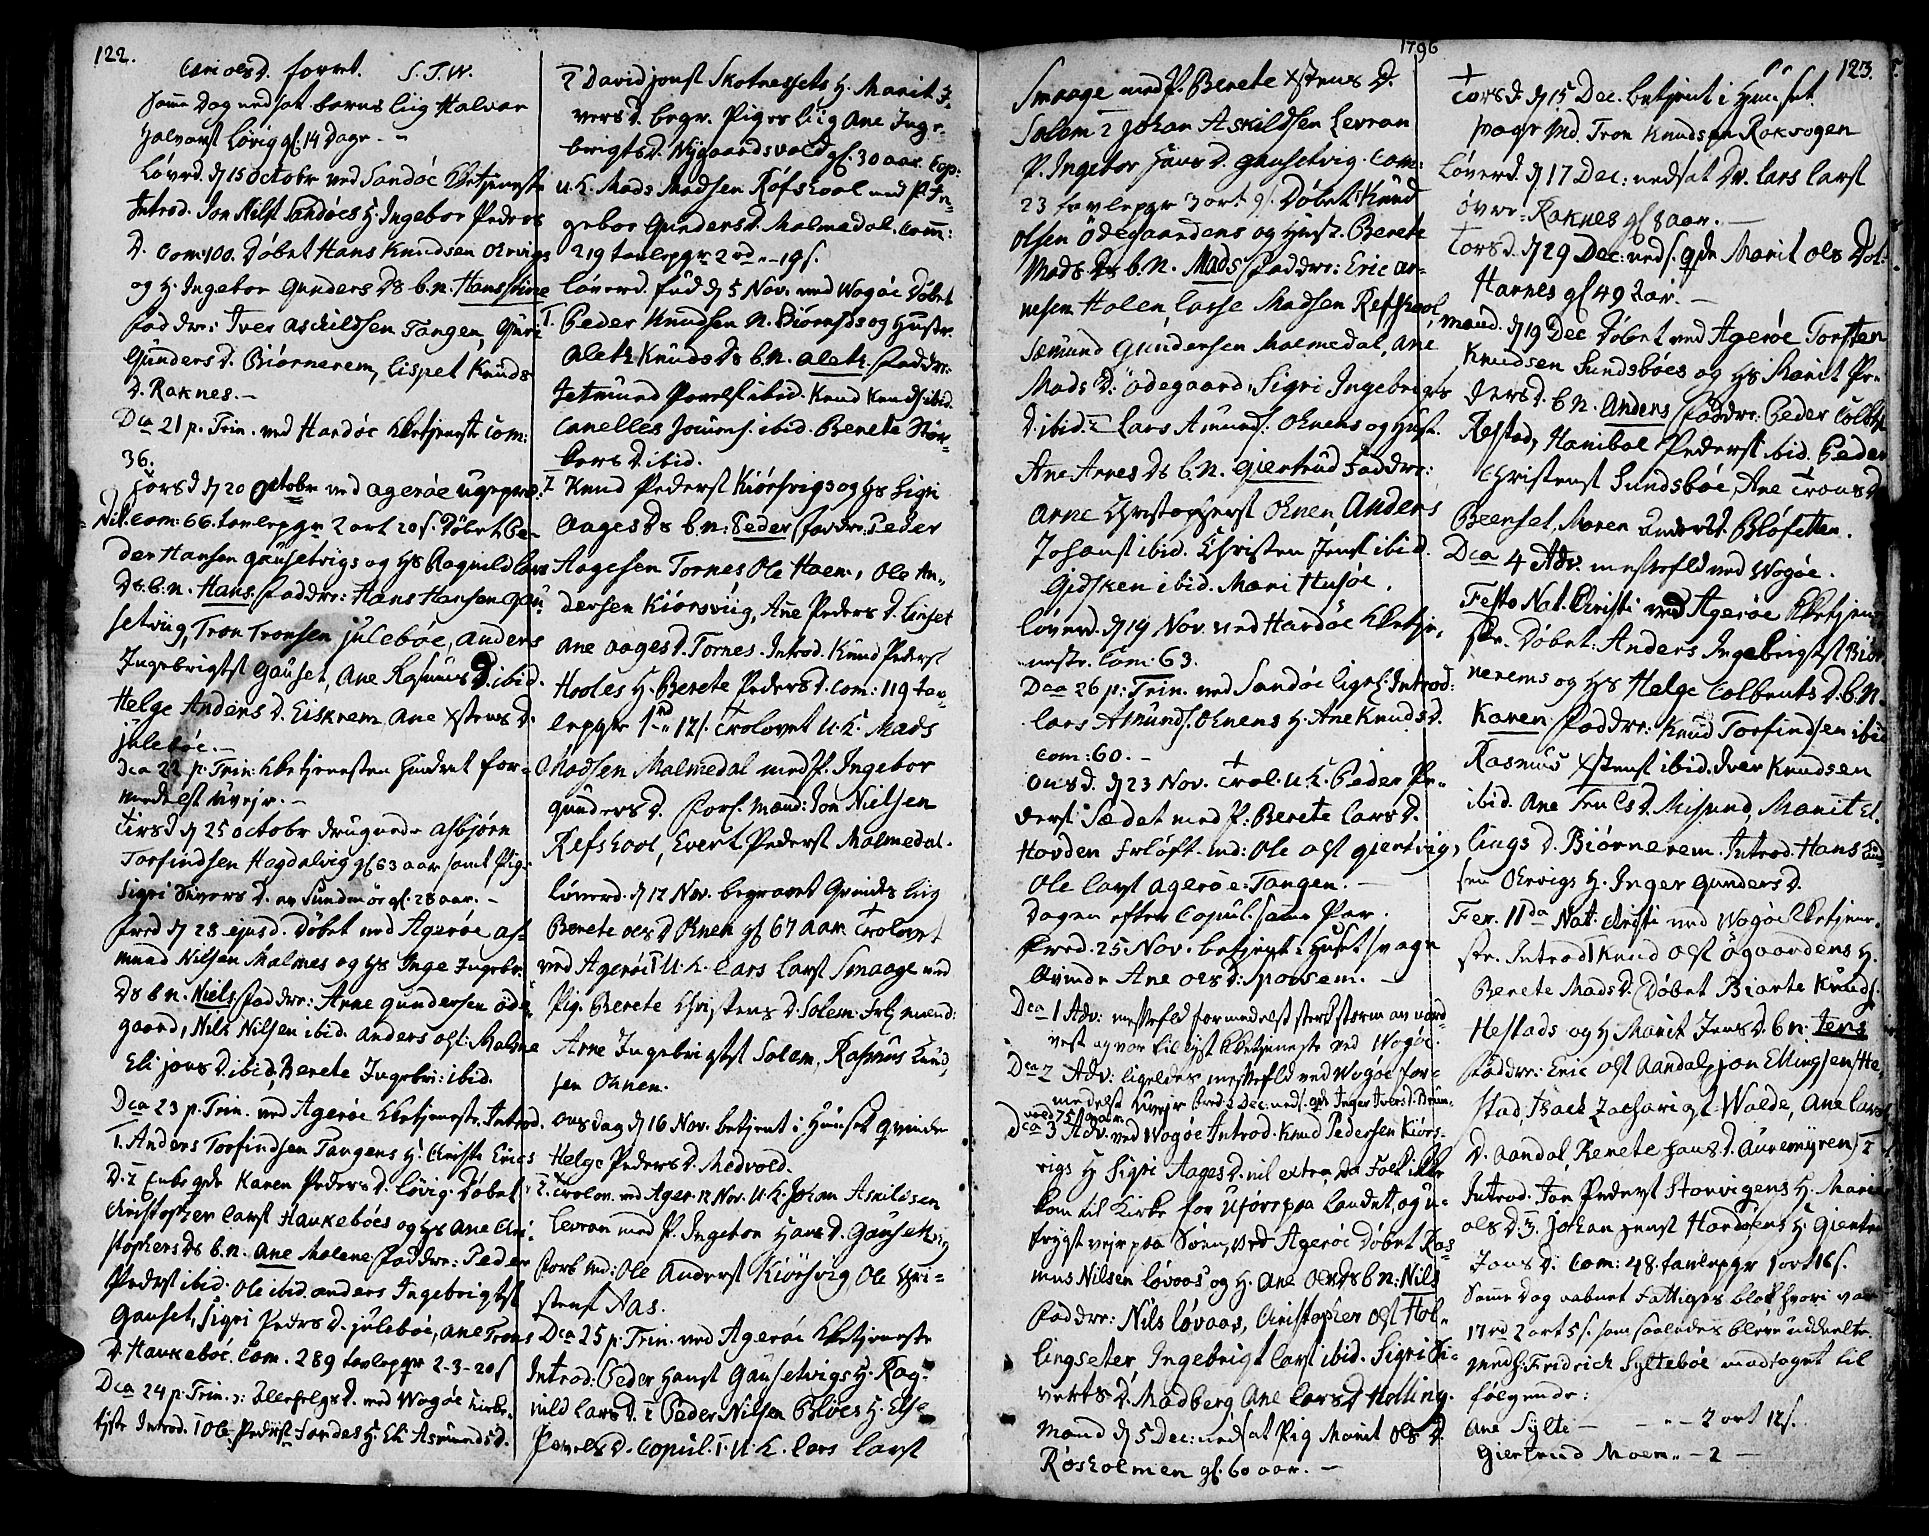 122.
Oles D. forret. S. T. W.
Samme Dag nedsat barns Liig Halvar
Halvarst Lövig gl. 14 Dage. -
Löverd. d 15 octobr ved Sandöe Kketjeneste
Introd. Jon Nilst Sandöes H. Ingebor Peders
D. Com: 100. Döbet Hans Knudsen Oervigs
og H. Ingebor Gunders Ds b. n. Hans
Faddre: Iver Askildsen Tangen, Guri
Gunders D. Biörnerem, Lispet Knuds
D. Raknes. -
Dca 21 p. Trin. ved Hardöe Kketjeneste Com:
36.
Torsd d 20 octobr ved Ageröe
Com: 66. tavlepge 2 ort 20 s. Döbet Pe-
der Hansen Gausetvigs og Hs Ragnild Lars
Ds b. n. Hans Faddre: Hans Hansen Gau-
setviig, Tron Tronsen Juleböe, Anders
Ingebrigtst Gauset, Ane Rasmus D. ibid.
Helge Anders D. Eiskrem Ane Xstens D.
Juleböe. -
Dca 22 p. Trin: Kketjenesten hindret for-
medelst Uveir. -
Tirsd d 25 octobr Asbjörn
Torfindsen Hagdalvig gl. 63 aar samt Pig.
Sigri Sivers D. av Sundmör gl. 28 aar. -
Fred d 28 ejusd. Döbet ved Ageröe As-
mund Nilsen Malmes og Hs Inge Ingebr.
Ds b. n. Niels Faddre: Arne Gundersen Öde-
gaard, Nils Nilsen ibid. Anders olst: Malme
Eli Jons D. ibid. Berete Ingebr: ibid.
Dca 23 p. Trin. ved Ageröe Kketjeneste Introd.
1. Anders Torfindsen Tangens H. Christi Erics
D. 2 Enke Karen Peders D. Lövig. Döbet
Christopher Larst Haukeböes og Hs Ane Chri-
stophers Ds b. n. Ane Malene Faddre: Peder
Pederst ibid. Ole ibid. Anders Ingebrigtst
Gauset, Sigri Peders D. Juleböe, Ane Trons
D. Haukeböe. Com. 289 tavlepge 2-3-20 s
Dca 24 p. Trin. : Allehelgs D. ved Wogöe Kirke-
tjste Introd. 1 Ole Pederst Sandes H. Eli Asmunds D.
2 David Jonst Skotnessets H. Marit I-
vers D. begr. Piges Liig Ane Inge-
brigts D. Nygaardsvold gl. 30 aar. Cop:
U. K. Mads Madsen Röfskool med P. In-
gebor Gunders D. Malmedal. Com:
219 tavlepge 2 rd - 19 s.
Löverd. d 5 Nov. ved Wogöe Döbet
1. Peder Knudsen N. Biörnsös og Hustr.
Alets Knuds Ds b. n. Alets Faddre:
Jetmund Povelst ibid. Knud Knuds. ibid.
Canelles Jonens. ibid. Berete Stör-
kers D. ibid.
2 Knud Pederst Kiörsvigs og Hs Sigri
Aages Ds b. n: Peder Faddre: Peder
Aagesen Tornes Ole Haem, Ole An-
dersen Kiörsviig, Ane Peders D. Linset
Ane Aages D. Tornes. Introd. Knud Pederst
Hooles H. Berete Peders D. Com: 119 tav-
lepge 1 rd - 12 s. Trolovet U. K. Mads
Madsen Malmedal med P. Ingebor
Gunders D. Forl. mænd: Jon Nielsen
Refskool, Evert Pederst Malmedal.
Löverd. d 12 Nov. begravet Qvindes Liig
Berete Oles D. Oknen gl. 67 aar Trolovet
ved Ageröe 1 U. K. Lars Larst Smaage med
Pig. Berete Christens D. Solem. Forl. mænd:
Arne Ingebrigtst Solem, Rasmus Knud-
sen Ohnen.
Onsdag d 16 Nov. betjent i Huuset Qvinden
Helge Peders D. Medvold.
2. Trolov. ved Ager. 12 Nov. U. K. Johan Askildsen
Levran med P. Ingebor Hans D. Gausetvig
Forl. md: Ole Anderst Kiörsvig, Ole Chri-
stenst Aas.
Dca 25 p. Trin. ved Ageröe Kketjeneste
Introd: Peder Hanst Gausetvigs H. Rag-
nild Lars D. 2 Peder Nilsen Blöes H. Else
Povels D. Copul. 1. U. K. Lars Larst
1796
123.
Smaage med P. Berete Xstens D.
Solem 2 Johan Askildsen Levran
P. Ingebor Hans D. Gausetvig. Com:
23 tavlepge 3 ort 9 s. Döbet Knud
Olsen Ödegaardens og Hust. Berete
Mads Ds b. n. Mads Faddre: Eric Ar-
nesen Holen, Lasse Madsen Refskool,
Sæmund Gundersen Malmedal, Ane
Mads D. Ödegaard, Sigri Ingebrigts
D. ibid. 2 Lars Asmunds. Ohnens og Hust.
Ane Arnes Ds b. n. Giertrud Faddre:
Arne Christopherst Ohnen, Anders
Johanst ibid. Christen Jenst ibid.
Gidsken ibid. Mari Husöe.
Löverd. d 19 Nov. ved Hardöe Kketje-
neste. Com: 63.
Dca 26 p: Trin. ved Sandöe Introd:
Lars Asmunds. Ohnens H. Ane Knuds D.
Com: 60. -
Onsd. d 23 Nov. Trol. U. K. Peder Pe-
derst Sædet med P. Berete Lars D.
Hovden Forl. md: Ole Olst Gientvig,
Ole Larst Ageröe-Tangen. -
Dagen efter Copul. same Par.
Fred. 25 Nov. betjent i Huset svage
Qvinde Ane Oles D. Spoosem. -
Dca 1 Adv: messefld formedelst sterk storm av nord-
vest og var tillyst Kketjeneste ved Wogöe.
Dca 2 Adv: ligeledes messefld ved Wogöe for-
medelst Uveir Fred. 2 Dec. neds. Inger Ivers D. Brun-
vold 75 aar.
Dca 3 Adv. ved Wogöe Introd. Knud Pedersen Kiörs-
vigs H Sigri Aages D. nil extra, da Folk ikke
kom til Kirke for Uföre paa Landet, og u-
trygt veir paa Söen, ved Ageröe Döbet Ras-
mus Nilsen Lövaas og H. Ane Oles Ds b. n: Nils
Faddre: Nils Lövaas, Christopher Olst Hol-
lingseter, Ingebrigt Larst ibid. Sigri Si-
verts D. Madberg Ane Lars D. Holling.
Mand d 5 Dec: nedsat Pig Marit Ols D.
Rösholmen gl. 60 aar. -
Torsd. d 15 Dec. betjent i Huuset
svage Md. Tron Knudsen Roksogen
Löverd. d 17 Dec: nedsat Dr. Lars Larst
övre-Raknes gl. 8 aar. -
Torsd. d 29 Dec: neds. Marit Ols Dot:
Harnes gl 49 2 aar. -
Mand. d 19 Dec Döbet ved Ageröe Torsten
Knudsen Sundsböes og Hs Marit Pe-
ders D. b. n. Anders Faddre: Peder Colbt
Refstad, Hanibal Pederst ibid. Peder
Christenst Sundsböe, Ane Trons D
Beenset, Maren Anders D. Blösetten.
Dca 4 Adv. messefld ved Wogöe.
Festo Nat. Christi ved Ageröe Kketjene-
ste. Döbet: Anders Ingebrigtst Biör-
nerems og Hs Helge Colbents D. b. n.
Karen Faddre: Knud Torfindsen ibid
Rasmus Xstenst ibid. Iver Knudsen
ibid. Ane Truls D. Misund, Marit El-
lings D. Biörnerem. Introd. Hans Knud-
sen Oervigs H. Inger Gunders D.
Fer. IIda Nat. Christi ved Wogöe Kketjene-
ste. Introd 1 Knud Olst Ögaardens H.
Berete Mads D. Döbet Biarte Knuds.
Hestads og H Marit Jens D. b n: Jens
Faddre: Eric Olst Aandal, Jon Ellingsen He-
stad, Isach Zachariast Wolde, Ane Lars
D. Aandal, Berete Hans D. Aunemyren, 2
Introd. Jon Pederst Storvigens H. Marit
Ols D. 3. Johan Jenst Hardöens H. Giertru
Jons D. Com: 48. tavlepge 1 ort 16 s.
Samme Dag aabnet Fattiges blok hvori var
17 rd 2 ort 5 s. som saaledes bleve uddeelte
Fridrich Sylteböe modtaget til
fölgende:
Ane Sylte - - - 2 ort 12 s.
Giertrud Moen - 2 -